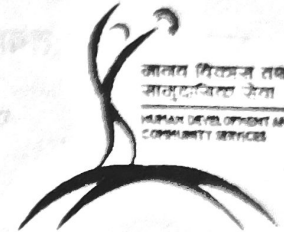 मानव विकास तथ
सामुदायिक सेवा
HUMAN DEVELOPMENT AN
COMMUNITY SERVICES